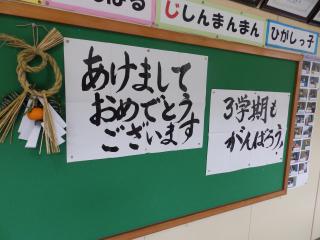 んばる
じしんまんまん
ひがしっ子
あけまして
おめでとう
ございます
3学期も
がんばろう!